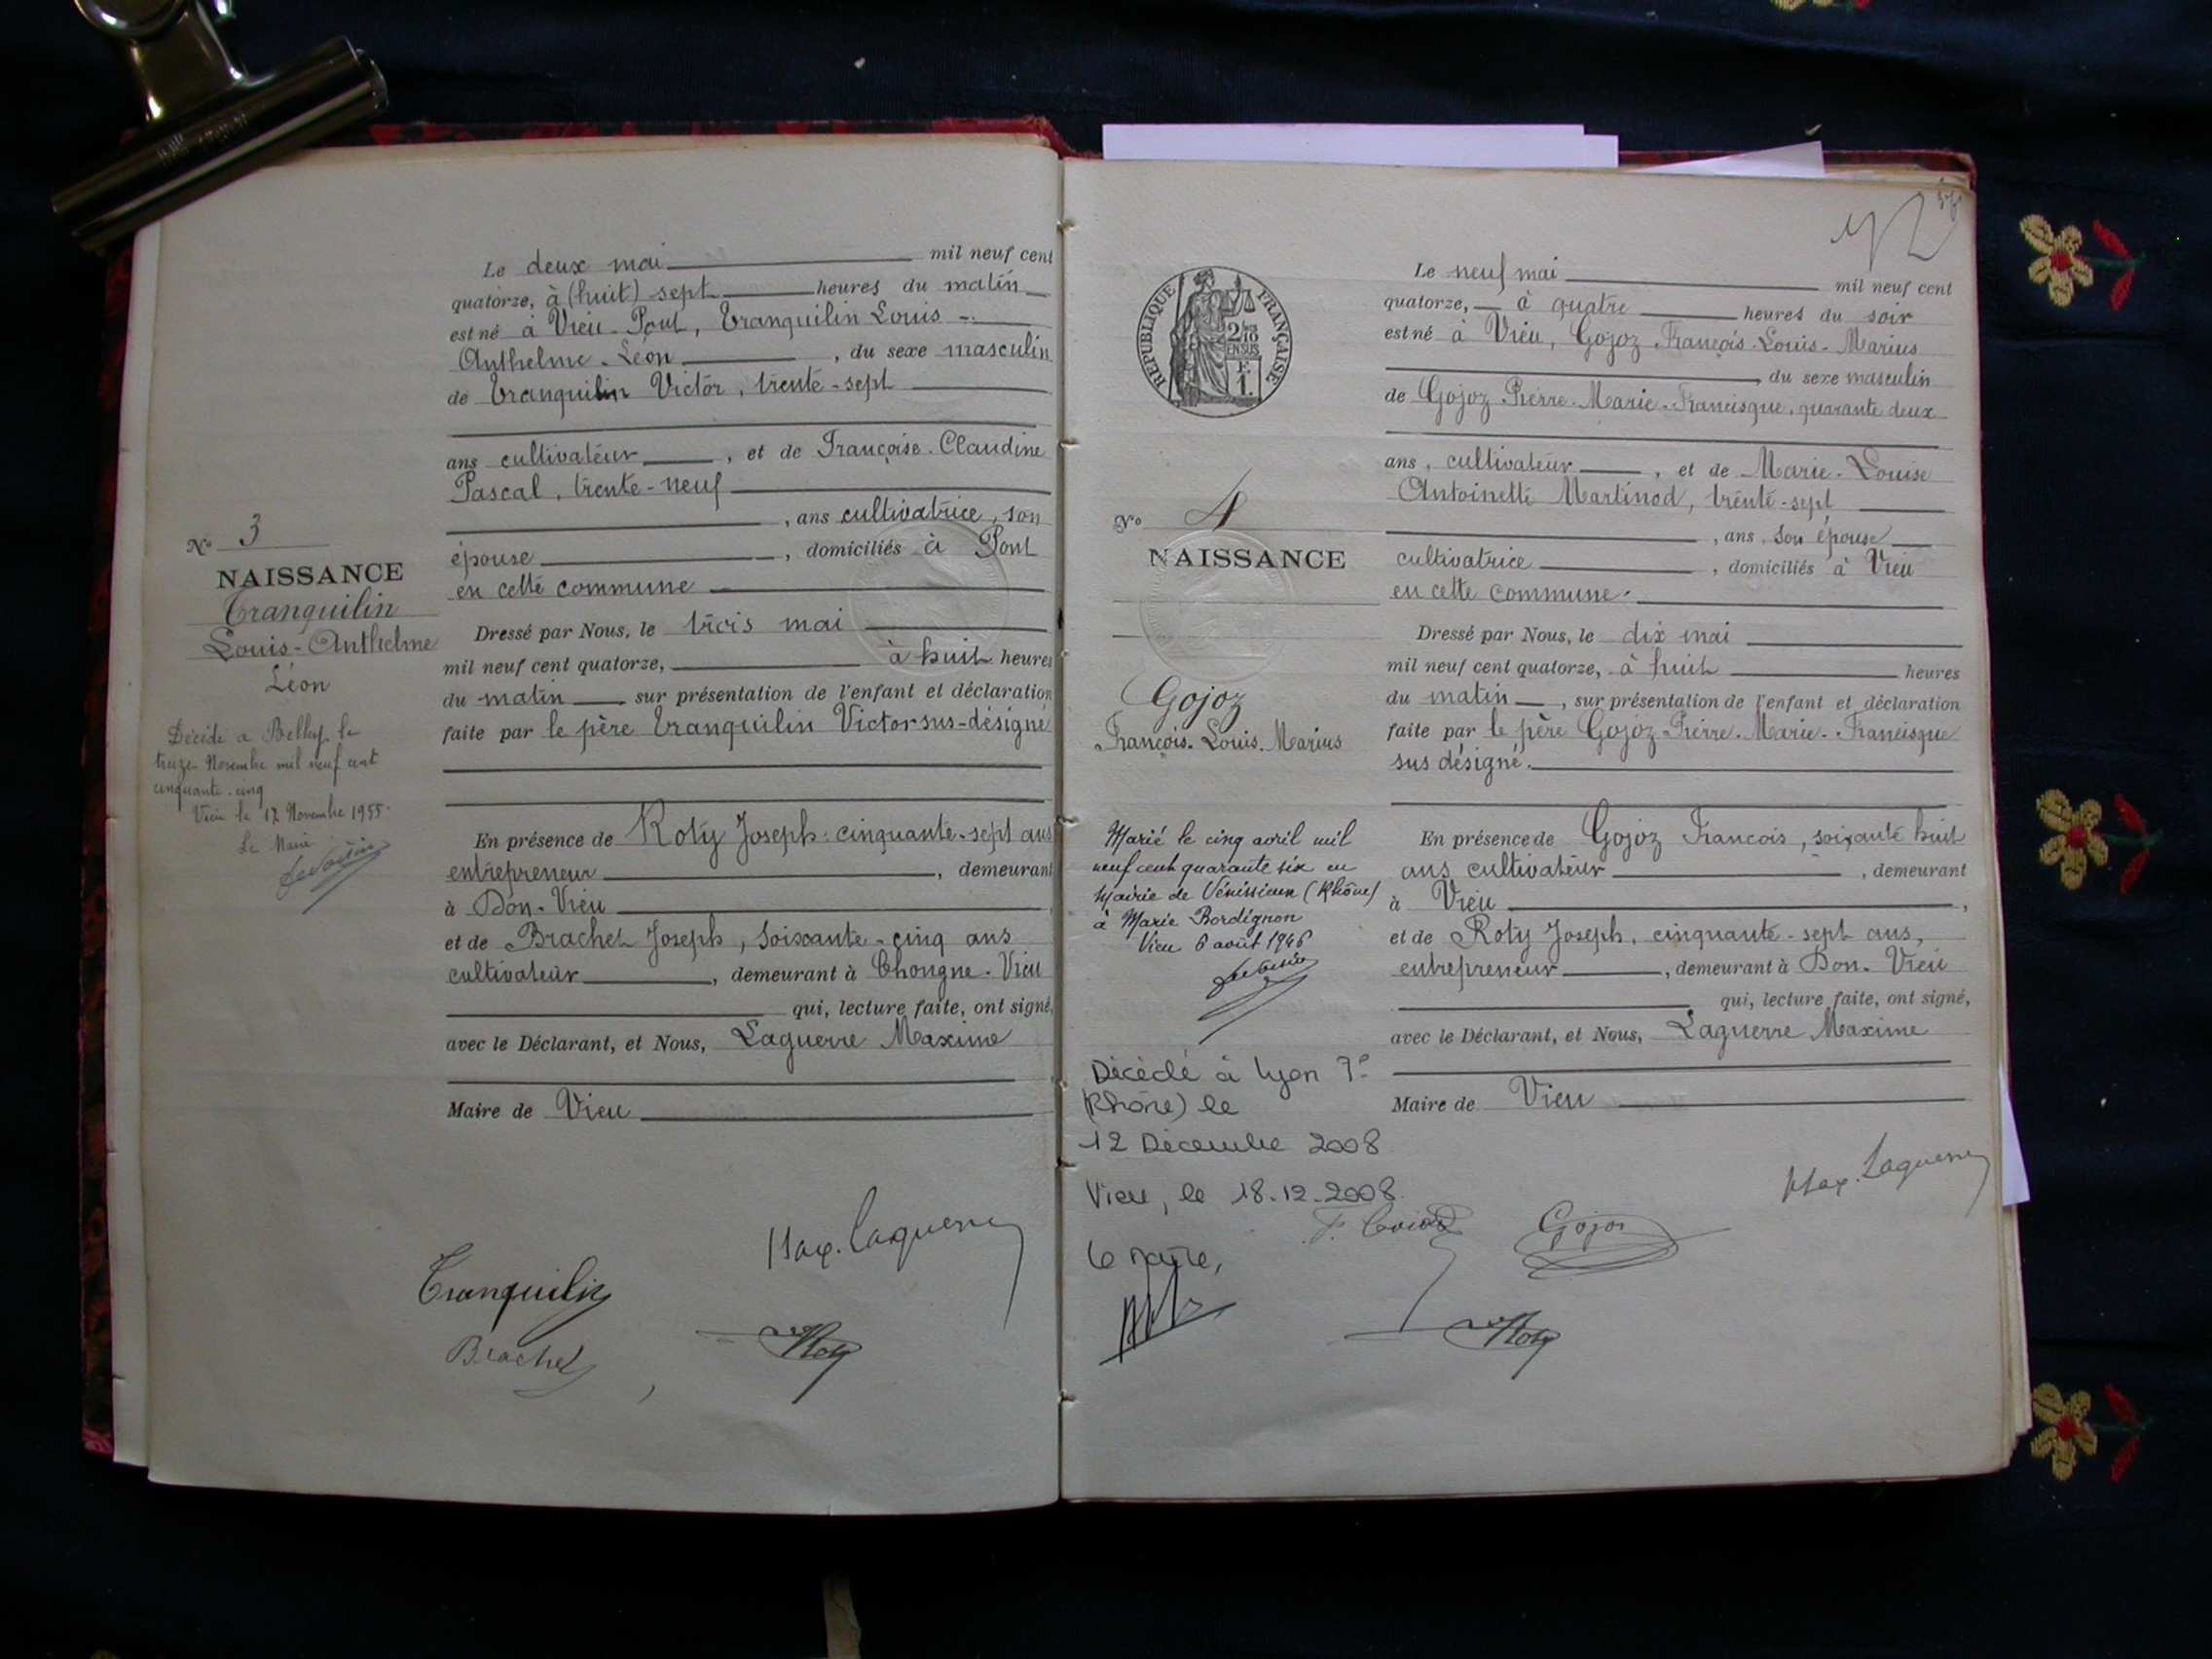 Le deux mai mil neuf cent
quatorze, à (huit) sept heures du matin
est né à Vieu-Pont, Tranquilin Louis-
Anthelme-Léon, du sexe masculin
de Tranquilin Victor, trente-sept
ans cultivateur, et de Françoise-Claudine
Pascal, trente-neuf
, ans cultivatrice, son
épouse, domiciliés à Pont
en cette commune
Dressé par Nous, le trois mai
mil neuf cent quatorze, à huit heures
du matin, sur présentation de l'enfant et déclaration
faite par le père Tranquilin Victor sus-désigné
En présence de Roty Joseph cinquante-sept ans
entrepreneur, demeurant
à Don-Vieu
et de Brachet Joseph, soixante-cinq ans
cultivateur, demeurant à Chongne-Vieu
qui, lecture faite, ont signé,
avec le Déclarant, et Nous, Laguerre Maxime
Maire de Vieu
Max. Laguerre
Tranquilin
Brachet
Roty
No 3
NAISSANCE
Tranquilin
Louis-Anthelme
Léon
Décédé à Belley le
treize Novembre mil neuf cent
cinquante-cinq
Vieu le 17 Novembre 1955
Le Maire
REPUBLIQUE FRANÇAISE
2/10
EN SUS
F.
1.
Le neuf mai mil neuf cent
quatorze, à quatre heures du soir
est né à Vieu, Gojoz François-Louis-Marius
, du sexe masculin
de Gojoz Pierre-Marie-Francisque, quarante deux
ans, cultivateur, et de Marie-Louise
Antoinette Martinod, trente-sept
, ans, son épouse
cultivatrice, domiciliés à Vieu
en cette commune.
Dressé par Nous, le dix mai
mil neuf cent quatorze, à huit heures
du matin, sur présentation de l'enfant et déclaration
faite par le père Gojoz Pierre-Marie-Francisque
sus désigné.
En présence de Gojoz Francois, soixante huit
ans cultivateur, demeurant
à Vieu,
et de Roty Joseph, cinquante-sept ans,
entrepreneur, demeurant à Don-Vieu
qui, lecture faite, ont signé,
avec le Déclarant, et Nous, Laguerre Maxime
Maire de Vieu
Max. Laguerre
Gojoz
Roty
No 4
NAISSANCE
Gojoz
François-Louis-Marius
Marié le cinq avril mil
neuf cent quarante six en
Mairie de Vénissieux (Rhône)
à Marie Bordignon
Vieu 6 août 1946
Décédé à Lyon 7e
(Rhône) le
12 Décembre 2008
Vieu, le 18-12-2008.
Le Maire,